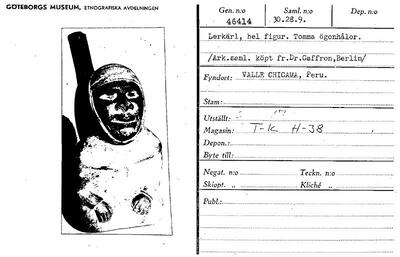 GÖTEBORGS MUSEUM, ETNOGRAFISKA AVDELNINGEN
Gen. n:o Saml. n:o Dep. n:o
46414 30.28.9.
Lerkärl, hel figur. Tomma ögonhålor.
/Ark.saml. köpt fr.Dr.Gaffron,Berlin/
Fyndort: VALLE CHICAMA, Peru.
Stam:
Utställt:
Magasin: T-K H-38
Depon.:
Byte till:
Negat. n:o Teckn. n:o
Skiopt. „ Kliché „
Publ.: